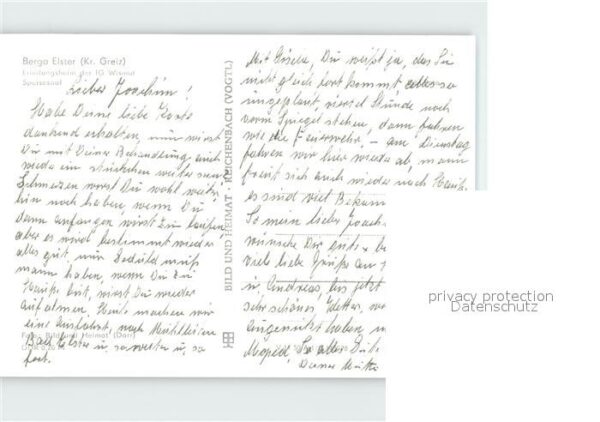 Berga Elster (Kr. Greiz)
Erholungsheim der IG Wismut
Speisesaal
Lieber Joachim!
Habe Deine liebe Karte
dankend erhalten, nun wirst
Du mit Deiner Behandlung auch
wieder ein Stückchen weiter sein
Schmerzen wirst Du wohl weiter
hin noch haben, wenn Du
dann anfangen wirst zu laufen
aber es wird bestimmt wieder
alles gut, nur Geduld muß
mann haben, wenn Du zu
Hause bist, wirst Du wieder
aufatmen. Heute machen wir
eine Ausfahrt, nach
Bad Elster u, so weiter u, so
fort.
Foto: Bild und Heimat (Darr)
BILD UND HEIMAT · REICHENBACH (VOGTL)
Mit Gisela, Du weißt ja, das Sie
nicht gleich fort kommt, alles so
eingeplant, viertel Stunde noch
vorm Spiegel stehen, dann fahren
wie die Feuerwehr - am Dienstag
fahren wir hier wieder ab, mann
freut sich auch wieder nach Hause
es sind viel
So mein lieber Joach
wünsche Dir
viel liebe Grüße an
Andreas, bis jetzt
sehr schönes Wetter,
haben
Moped, So alles Gute
Deine Mutti
privacy protection
Datenschutz